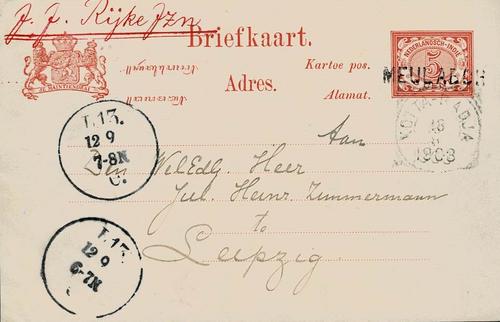 J. J. Rijke Jzn
Briefkaart.
Adres.
Kartoe pos.
Alamat.
JE MAINTIENDRAI
NEDERLANDSCH-INDIË
5
MEULABOH
KOTTA-RADJA
1903
L.13.
12 9
7-8N
C.
Aan
Den WelEdg. Heer
Jul. Heinr. Zimmermann
to
Leipzig.
L.13.
12 9
6-7N